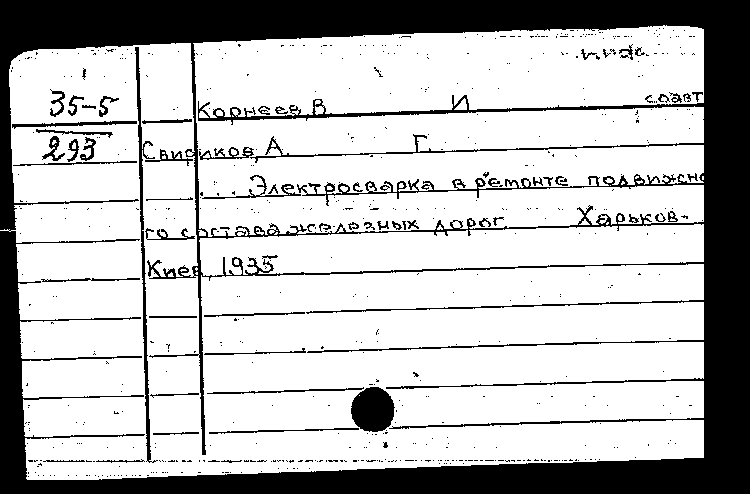 35-5 Корнеев, В. И. соавт
293 Свириков, А. Г.
... Электросварка в ремонте подвижно
го состава железных дорог. Харьков-
Киев, 1935